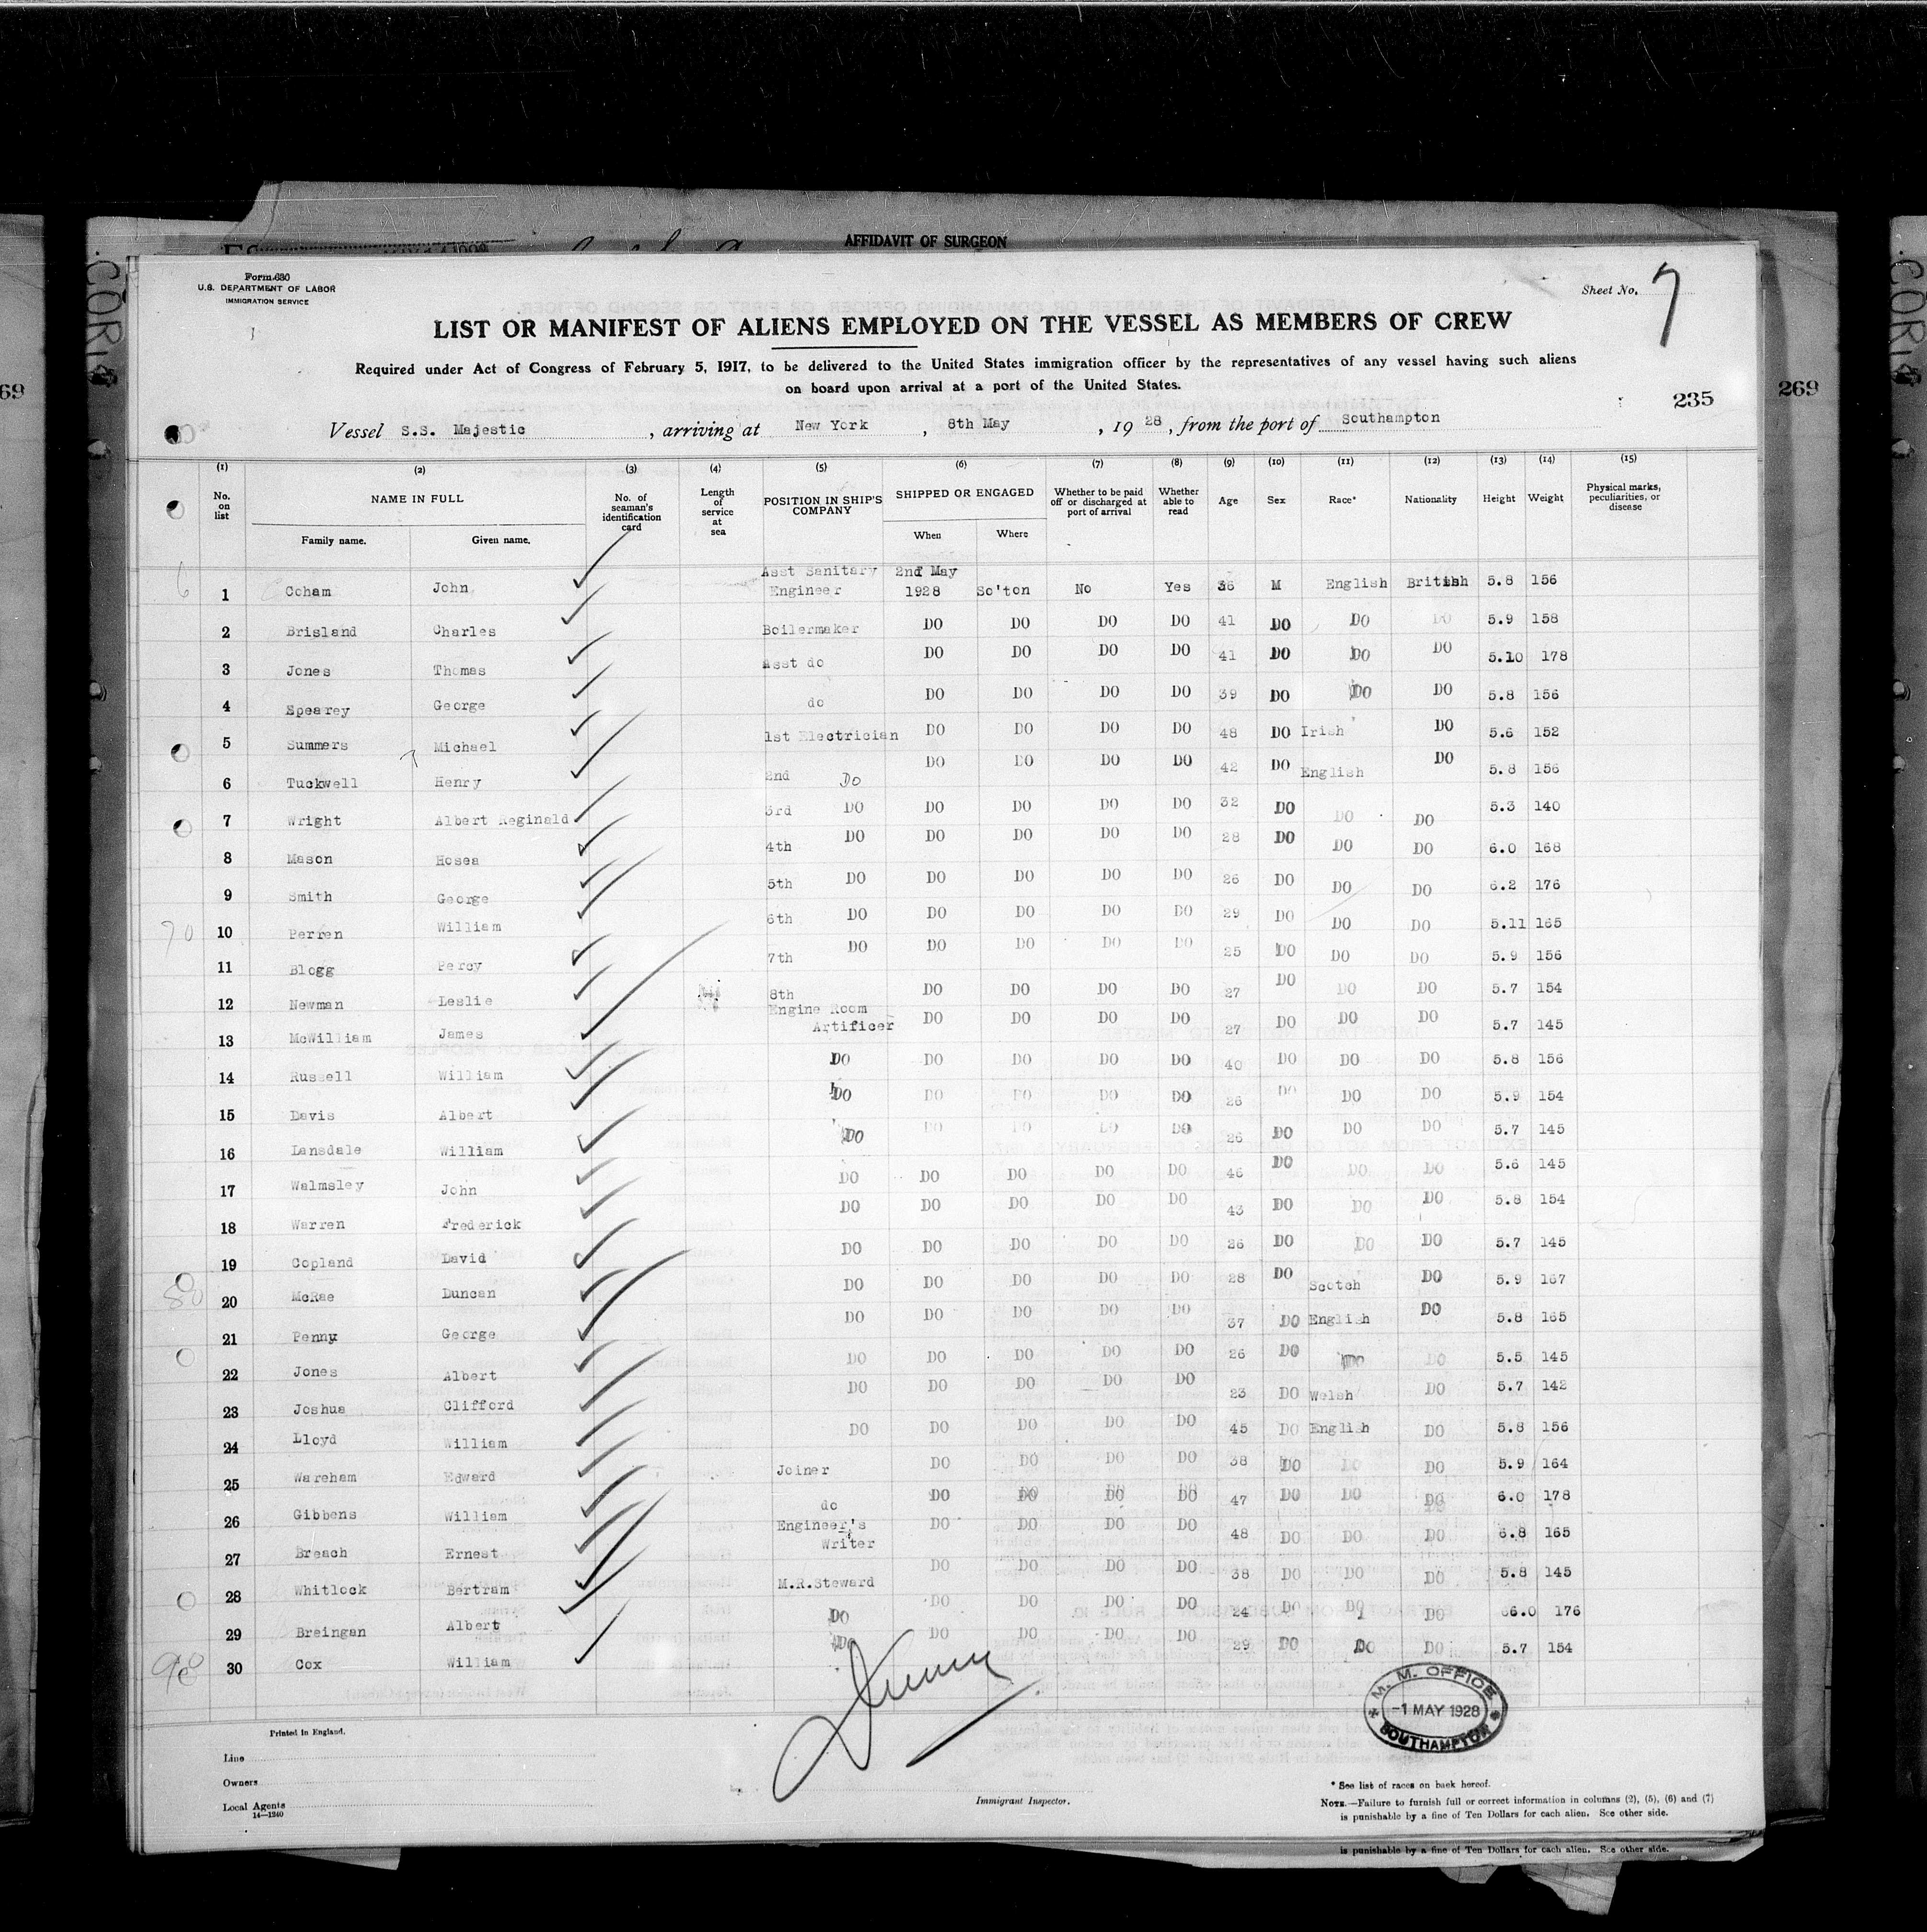 AFFIDAVIT OF SURGEON
Form 680
U.S. DEPARTMENT OF LABOR
IMMIGRATION SERVICE
Sheet No. 7
LIST OR MANIFEST OF ALIENS EMPLOYED ON THE VESSEL AS MEMBERS OF CREW
Required under Act of Congress of February 5, 1917, to be delivered to the United States immigration officer by the representatives of any vessel having such aliens
on board upon arrival at a port of the United States.
235
269
69
Vessel S.S. Majestic, arriving at New York, 8th May, 1928, from the port of Southampton
(1) (2) (3) (4) (5) (6) (7) (8) (9) (10) (11) (12) (13) (14) (15)
No. on list NAME IN FULL Family name. Given name. No. of seaman's identification card Length of service at sea POSITION IN SHIP'S COMPANY SHIPPED OR ENGAGED When Where Whether to be paid off or discharged at port of arrival Whether able to read Age Sex Race* Nationality Height Weight Physical marks, peculiarities, or disease
1 Coham John Asst Sanitary Engineer 2nd May 1928 So'ton No Yes 36 M English British 5.8 156
2 Brisland Charles Boilermaker DO DO DO DO 41 DO DO DO 5.9 158
3 Jones Thomas Asst do DO DO DO DO 41 DO DO DO 5.10 178
4 Spearey George do DO DO DO DO 39 DO DO DO 5.8 156
5 Summers Michael 1st Electrician DO DO DO DO 48 DO Irish DO 5.6 152
6 Tuckwell Henry 2nd Do DO DO DO DO 42 DO English DO 5.8 156
7 Wright Albert Reginald 3rd DO DO DO DO DO 32 DO DO DO 5.3 140
8 Mason Hosea 4th DO DO DO DO DO 28 DO DO DO 6.0 168
9 Smith George 5th DO DO DO DO DO 26 DO DO DO 6.2 176
70 10 Perren William 6th DO DO DO DO DO 29 DO DO DO 5.11 165
11 Blogg Percy 7th DO DO DO DO DO 25 DO DO DO 5.9 156
12 Newman Leslie 8th DO DO DO DO 27 DO DO DO 5.7 154
13 McWilliam James Engine Room Artificer DO DO DO DO 27 DO DO DO 5.7 145
14 Russell William DO DO DO DO DO 40 DO DO DO 5.8 156
15 Davis Albert DO DO DO DO DO 26 DO DO DO 5.9 154
16 Lansdale William DO DO DO DO DO 26 DO DO DO 5.7 145
17 Walmsley John DO DO DO DO DO 46 DO DO DO 5.6 145
18 Warren Frederick DO DO DO DO DO 43 DO DO DO 5.8 154
19 Copland David DO DO DO DO DO 26 DO DO DO 5.7 145
80 20 McRae Duncan DO DO DO DO DO 28 DO Scotch DO 5.9 167
21 Penny George DO DO DO DO DO 37 DO English DO 5.8 165
22 Jones Albert DO DO DO DO DO 26 DO DO DO 5.5 145
23 Joshua Clifford DO DO DO DO DO 23 DO Welsh DO 5.7 142
24 Lloyd William DO DO DO DO DO 45 DO English DO 5.8 156
25 Wareham Edward Joiner DO DO DO DO 38 DO DO DO 5.9 164
26 Gibbens William do DO DO DO DO 47 DO DO DO 6.0 178
27 Breach Ernest Engineer's Writer DO DO DO DO 48 DO DO DO 6.8 165
28 Whitlock Bertram M.R.Steward DO DO DO DO 38 DO DO DO 5.8 145
29 Breingan Albert DO DO DO DO DO 24 DO DO DO 66.0 176
90 30 Cox William DO DO DO DO DO 29 DO DO DO 5.7 154
M. M. OFFICE
-1 MAY 1928
SOUTHAMPTON
Printed in England.
Line
Owners
Local Agents
14—1240
Immigrant Inspector.
* See list of races on back hereof.
NOTE.—Failure to furnish full or correct information in columns (2), (5), (6) and (7)
is punishable by a fine of Ten Dollars for each alien. See other side.
is punishable by a fine of Ten Dollars for each alien. See other side.